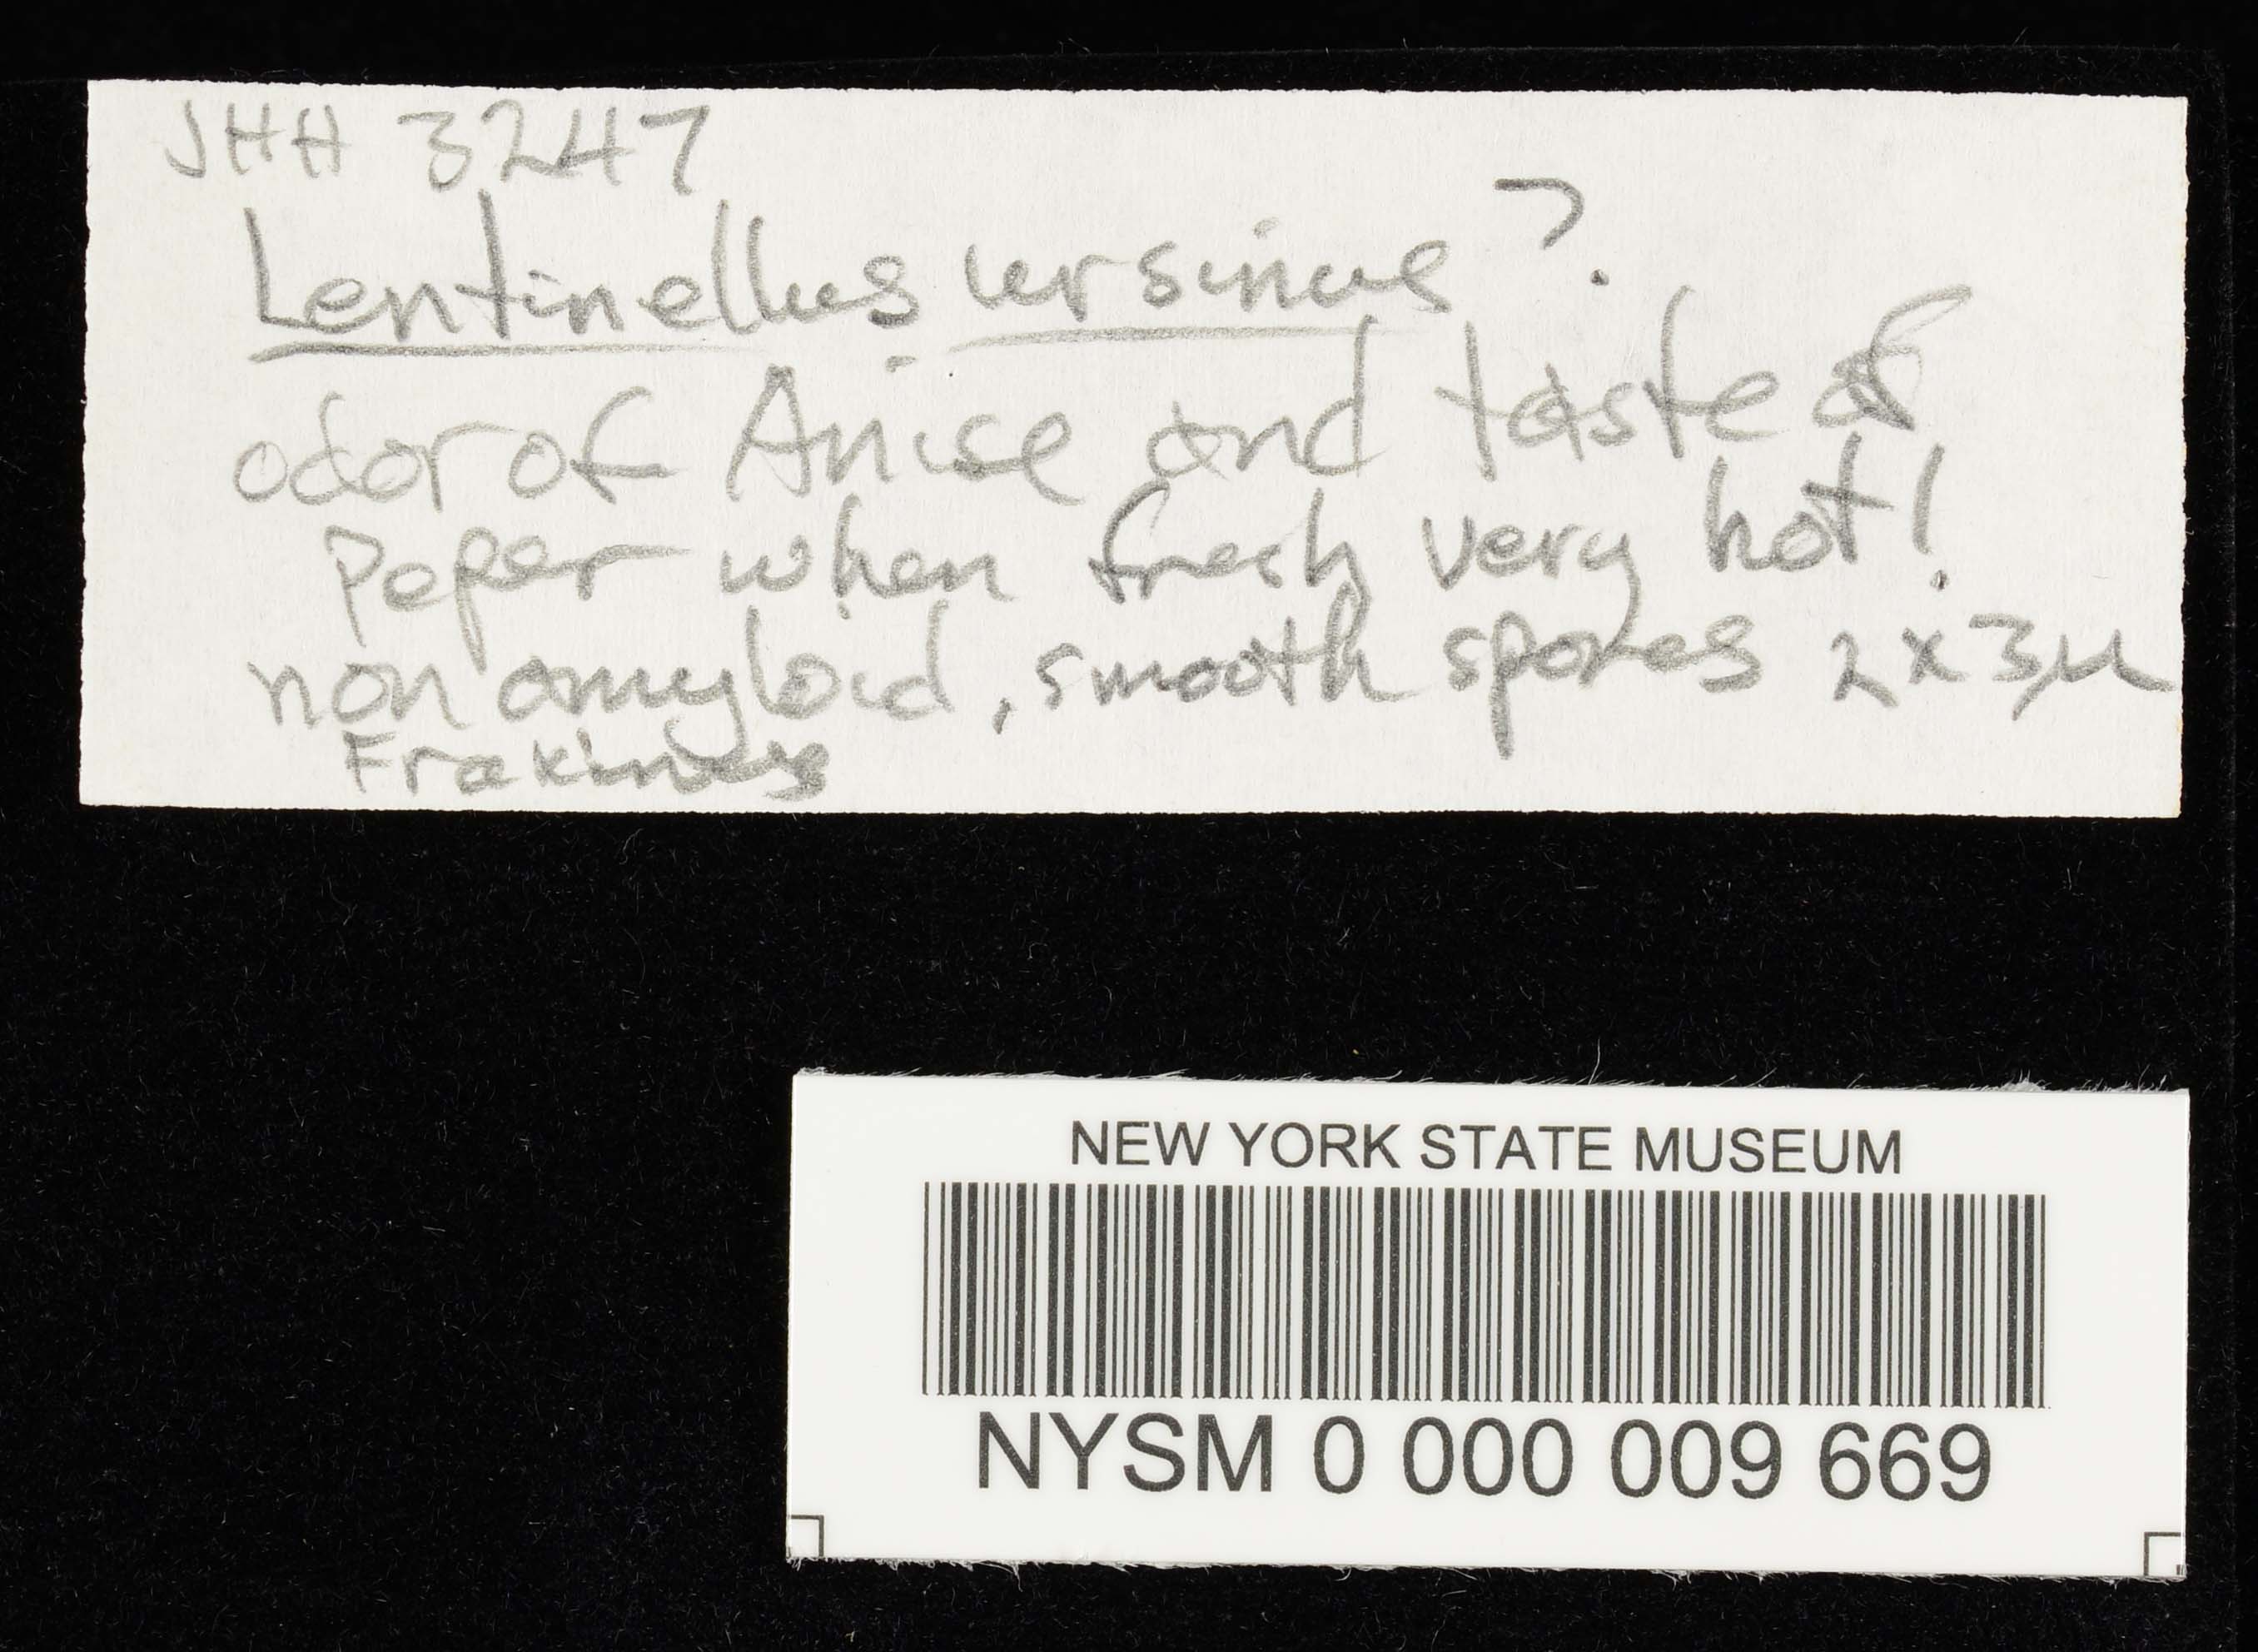 JHH 3247
Lentinellus ursinus ?
odor of Anise and taste of
Peper when fresh very hot!
non amyloid, smooth spores 2 x 3µ
Fraxinus
NEW YORK STATE MUSEUM
NYSM 0 000 009 669